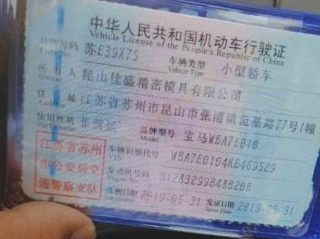 中华人民共和国机动车行驶证
Vehicle License of the People's Republic of China
号牌号码 苏E39X75 车辆类型 小型轿车
Vehicle Type
所有人 昆山佳盛精密模具有限公司
住址 江苏省苏州市昆山市张浦镇范基路77号1幢
使用性质 非营运 品牌型号 宝马WBA7E010
江苏省苏州 车辆识别代号
市公安局交 发动机号码
通警察支队 注册日期 2019-05-31 发证日期 2019-05-31